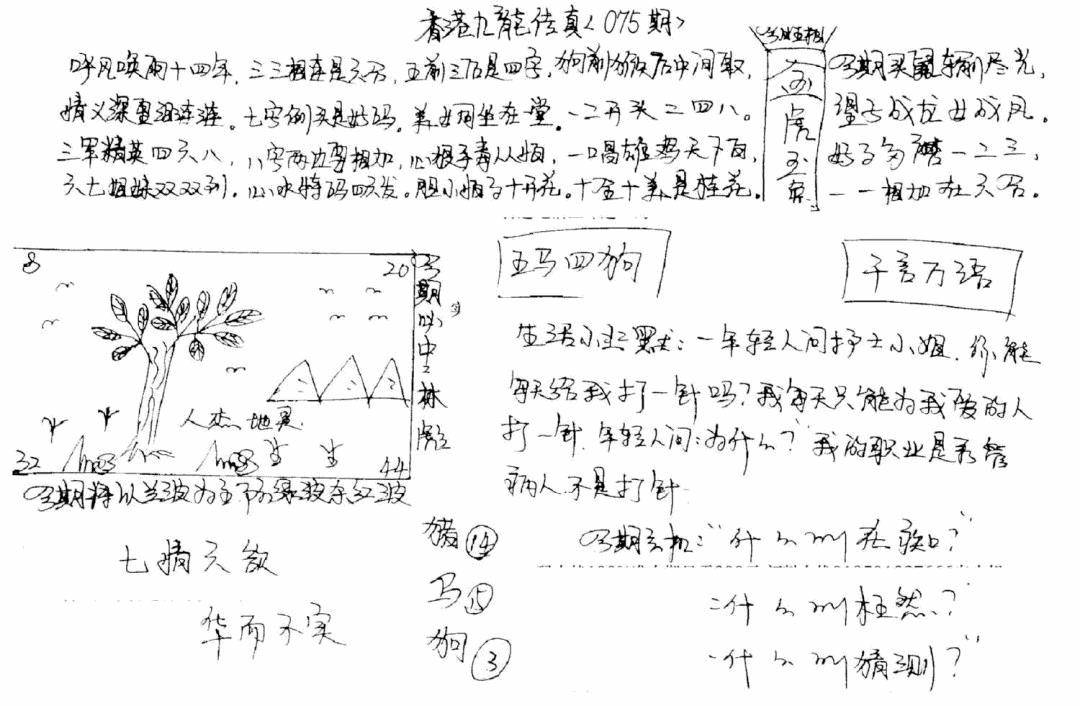 香港九龍传真<075期>
呼风唤雨十四年，三三相连是六号，五前三后是四字，狗前猴后中间取，
情义深重泪涟涟。七字倒头是好码。美女同坐在堂。一二开头二四八。
三军精英四六八，八字两边要相加，心狠手毒从娘，一唱雄鸡天下白，
六七姐妹双双到，心水特码四六发。胆小 十开花。十全十美是桂花。
今期玄机
金虎玉兔
今期买 尽光，
望子成龙女成凤。
好事多磨一二三，
一一相加在六号。
8
20
32
44
人杰地灵
今期必中
今期特以兰波为主 绿波 红波
五马四狗
千言万语
生活小幽默：一年轻人问护士小姐，你能
每天给我打一针吗？我每天只能为我爱的人
打一针，年轻人问：为什么？我的职业是看管
病人不是打针
今期玄机："什么叫 ？"
"什么叫枉然？"
"什么叫猜测？"
七情六欲
华而不实
猪 14
马 15
狗 3